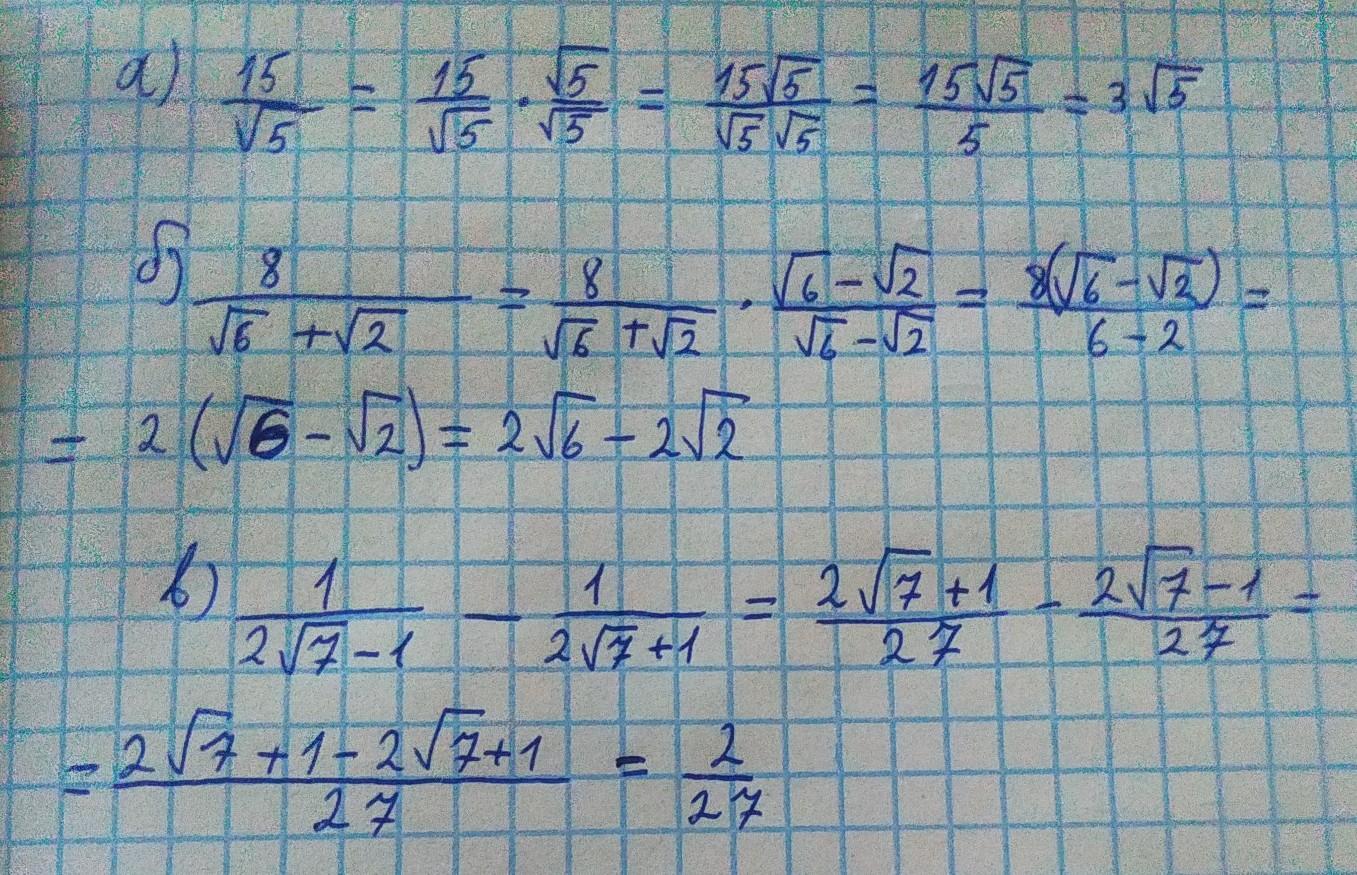 а) 15/√5 = 15/√5 · √5/√5 = 15√5/√5√5 = 15√5/5 = 3√5
б) 8/(√6 + √2) = 8/(√6 + √2) · (√6 − √2)/(√6 − √2) = 8(√6 − √2)/(6 − 2) =
= 2(√6 − √2) = 2√6 − 2√2
в) 1/(2√7 − 1) − 1/(2√7 + 1) = (2√7 + 1)/27 − (2√7 − 1)/27 =
= (2√7 + 1 − 2√7 + 1)/27 = 2/27